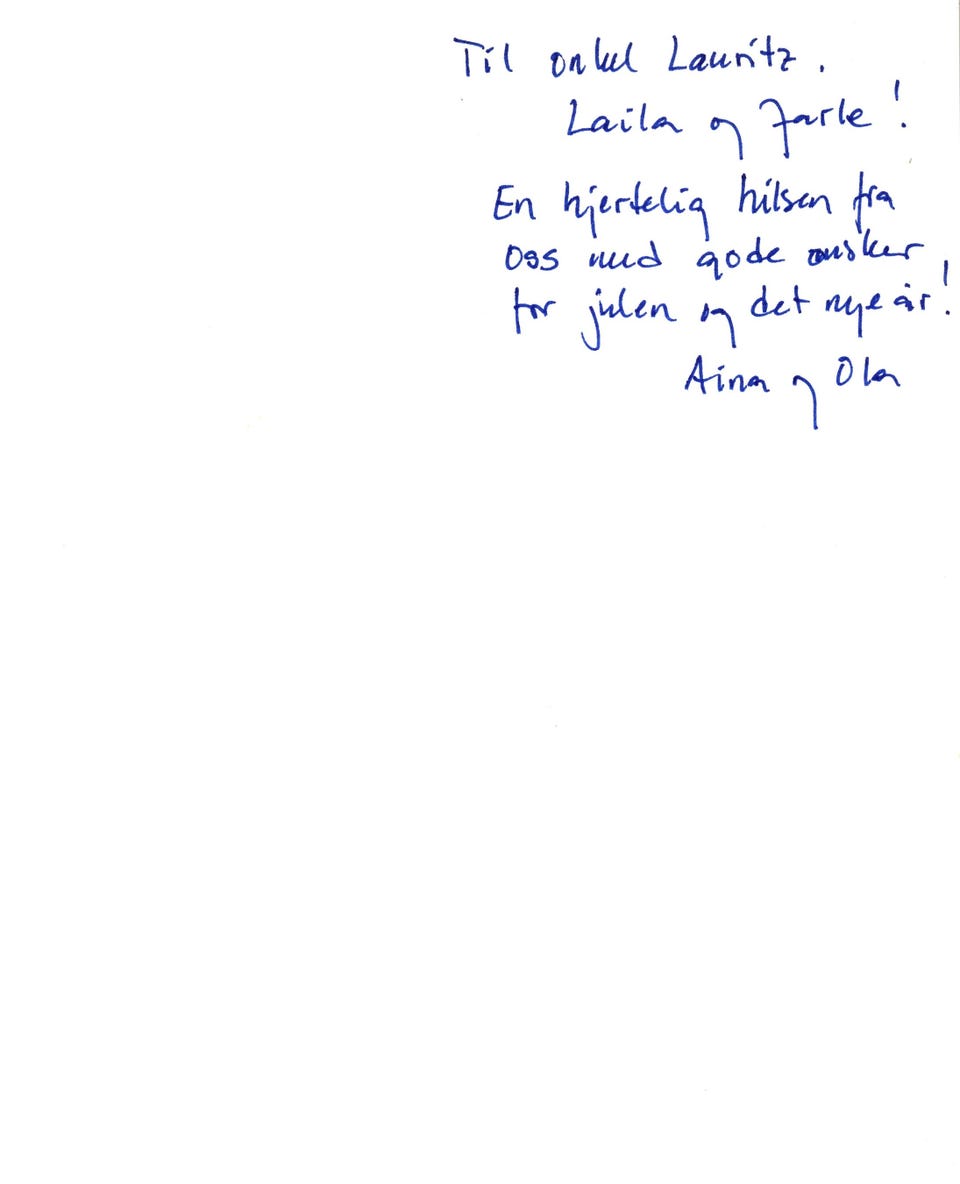 Til onkel Lauritz.
Laila og Jarle!
En hjertelig hilsen fra
oss med gode ønsker
for julen og det nye år!
Aina og Ola